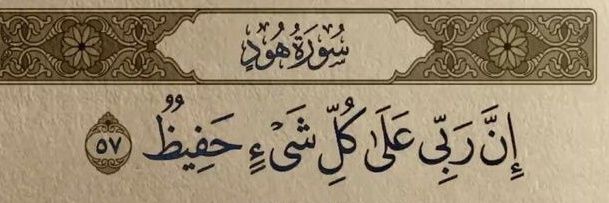 سُورَةُ هُودٍ
إِنَّ رَبِّي عَلَىٰ كُلِّ شَيْءٍ حَفِيظٌ ٥٧